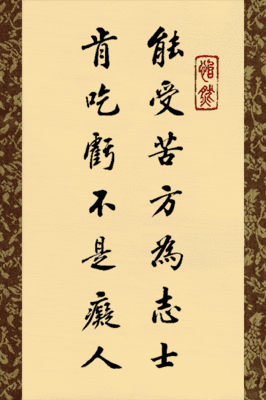 能受苦方為志士
肯吃虧不是癡人